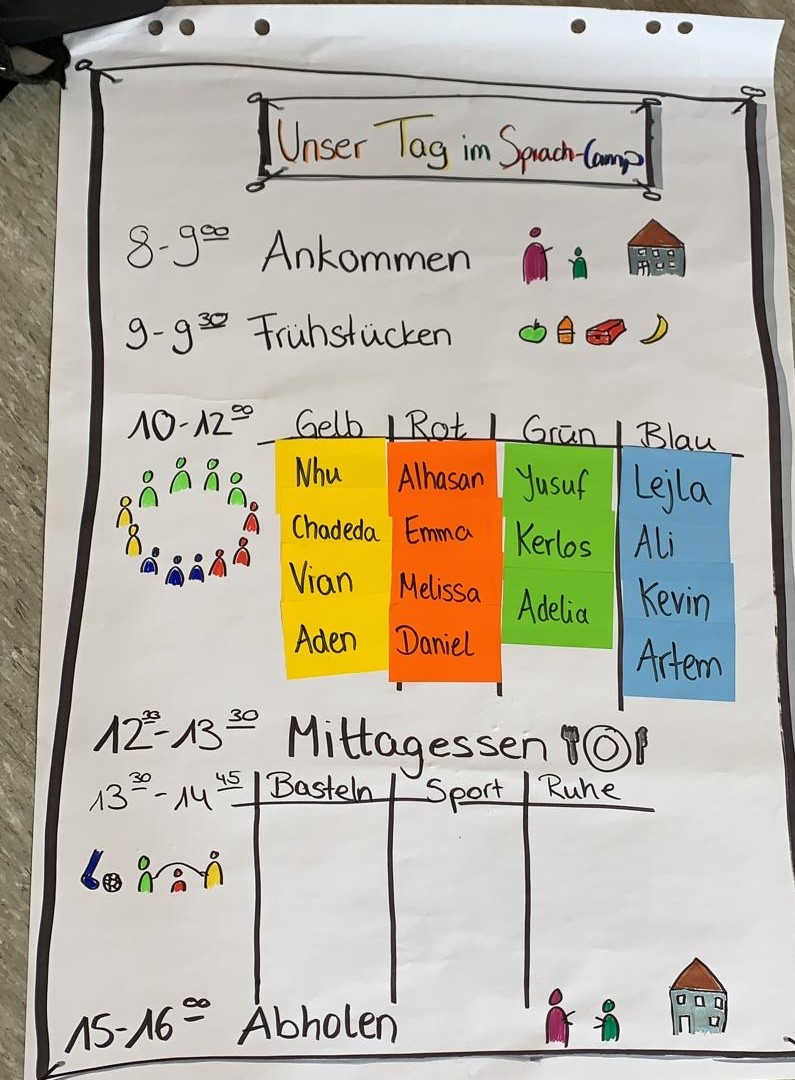 Unser Tag im Sprach-Camp
8-9⁰⁰ Ankommen
9-9³⁰ Frühstücken
10-12⁰⁰ Gelb Rot Grün Blau
Nhu Alhasan Yusuf Lejla
Chadeda Emma Kerlos Ali
Vian Melissa Adelia Kevin
Aden Daniel Artem
12³⁰-13³⁰ Mittagessen
13³⁰-14⁴⁵ Basteln Sport Ruhe
15-16⁰⁰ Abholen